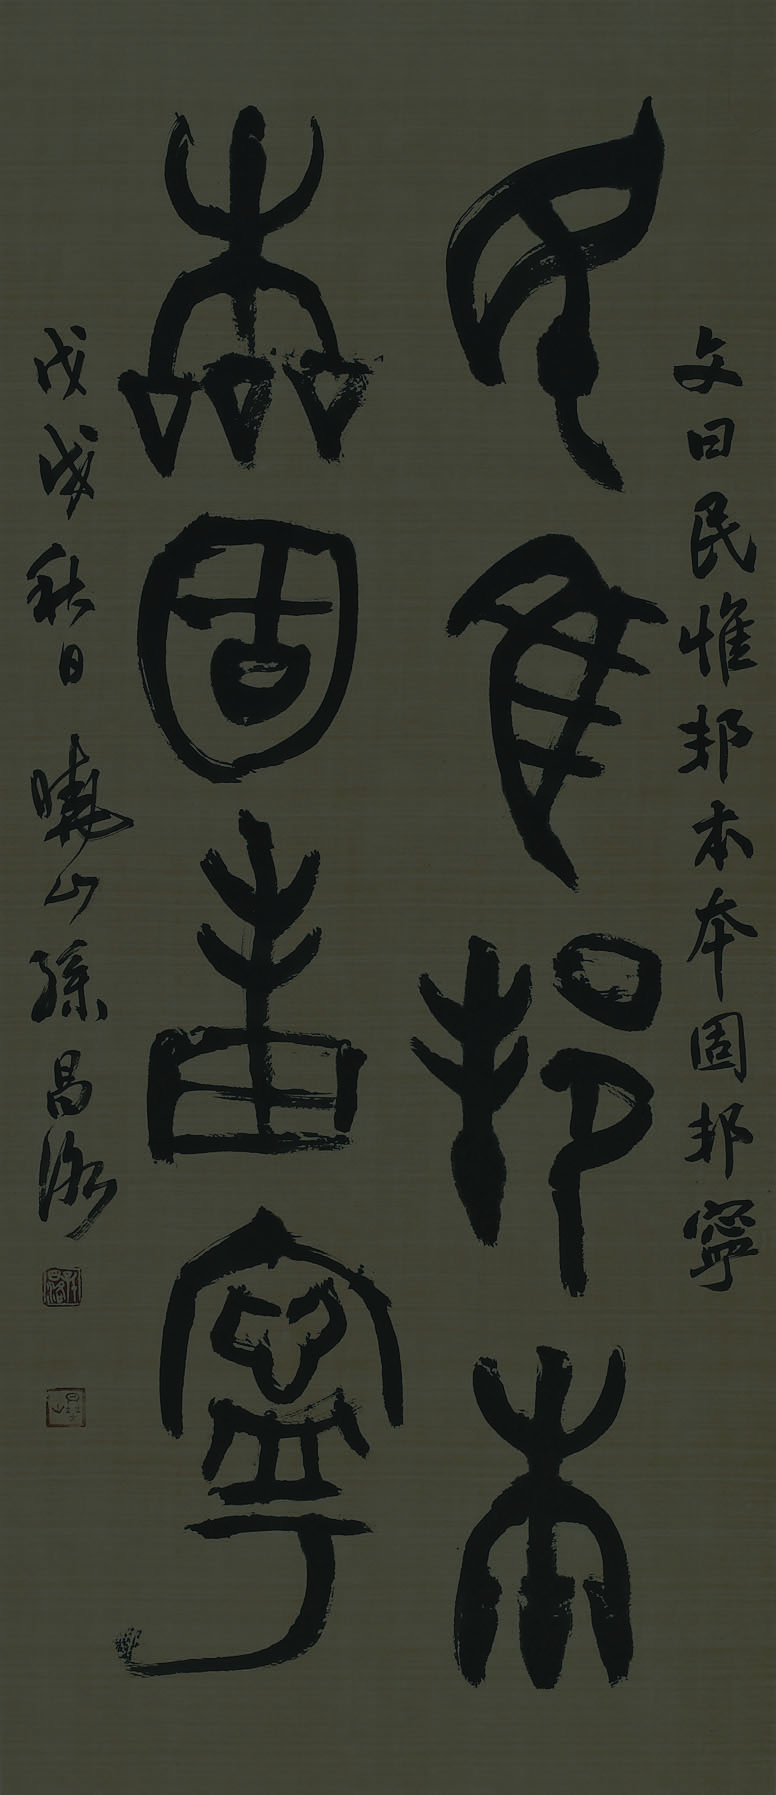 文曰民惟邦本本固邦寧
民隹邦本
本固邦寧
戊戌秋日曉山孫昌洛